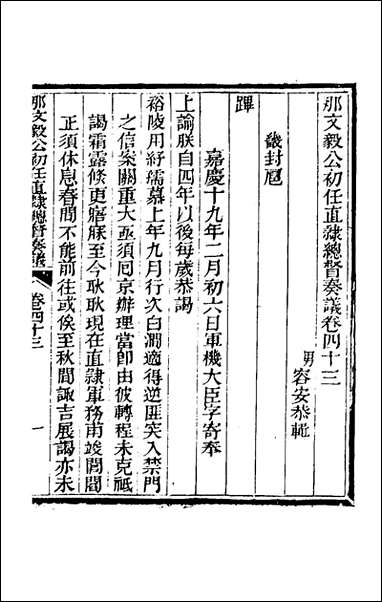 那文毅公初任直隸總督奏議卷四十三
男容安恭輯
畿封扈
蹕
嘉慶十九年二月初六日軍機大臣字寄奉
上諭朕自四年以後每歲恭謁
裕陵用紓孺慕上年九月行次白澗適得逆匪突入禁門
之信案關重大亟須囘京辦理當卽由彼轉程未克祗
謁霜露倏更寤寐至今耿耿現在直隸軍務甫竣閭閻
正須休息春間不能前往或俟至秋間諏吉展謁亦未
那文毅公初任直隸總督奏議 卷四十三 一